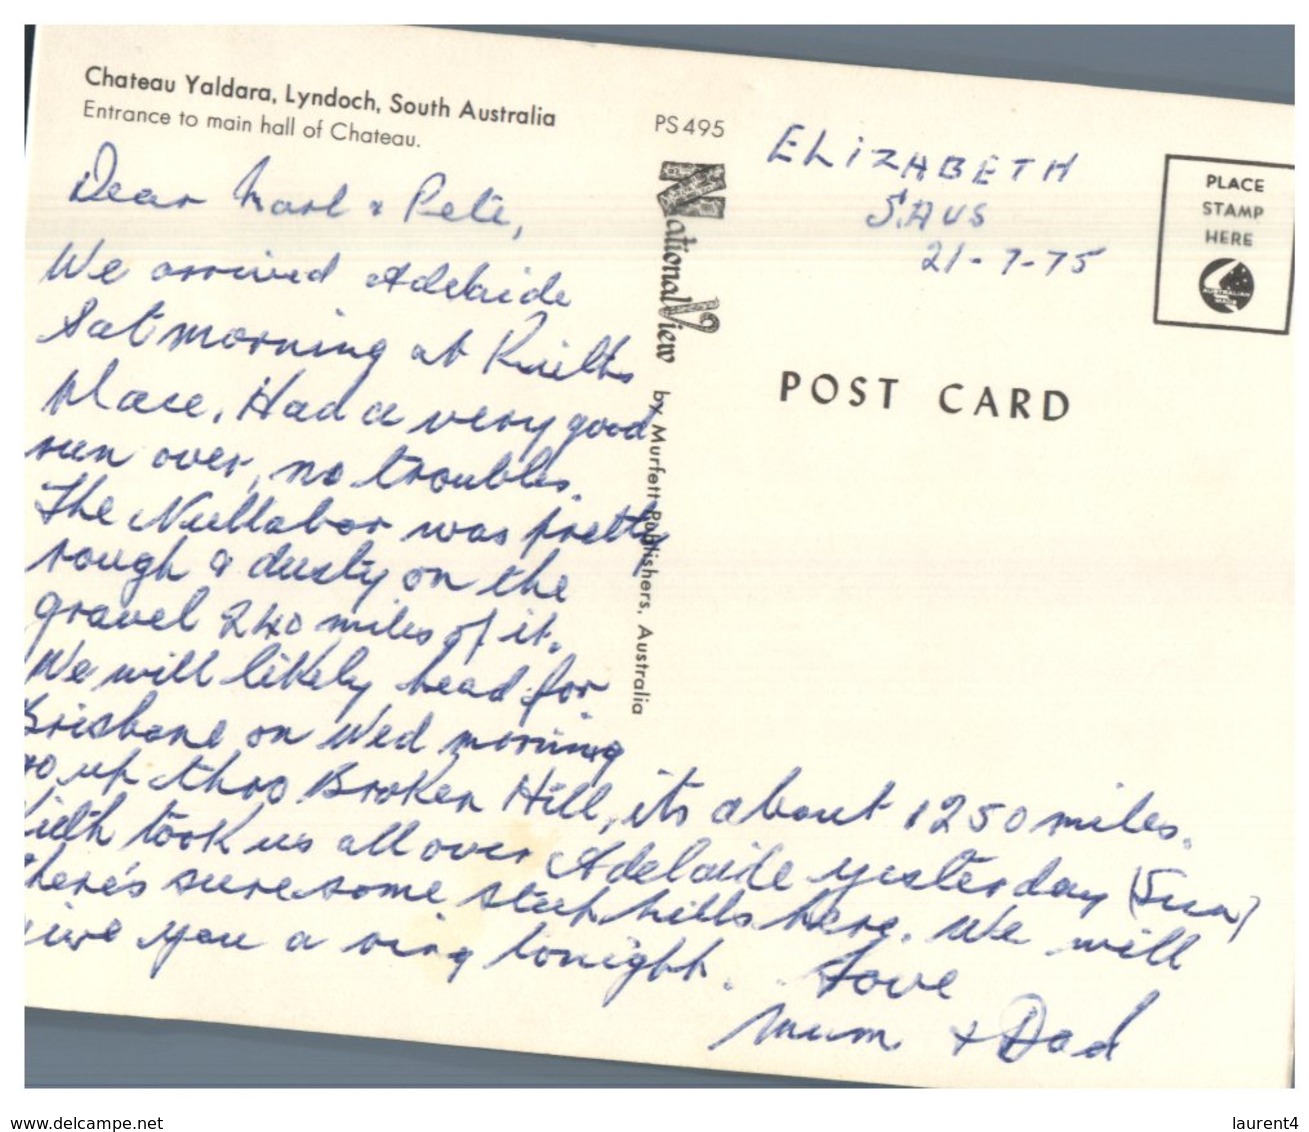 Chateau Yaldara, Lyndoch, South Australia
Entrance to main hall of Chateau.
PS495
ELIZABETH
S.AUS
21-7-75
PLACE
STAMP
HERE
AUSTRALIAN
MADE
National View by Murfett Publishers, Australia
POST CARD
Dear & Pete,
We arrived Adelaide
Sat morning at
place. Had a very good
run over, no troubles.
The Nullabor was pretty
rough & dusty on the
gravel 240 miles of it.
We will likely head for
Brisbane on Wed morning
go up thro Broken Hill, its about 1250 miles.
Kieth took us all over Adelaide yesterday (Sun)
there's sure some steep hills here. We will
give you a ring tonight. Love
Mum & Dad
www.delcampe.net
laurent4